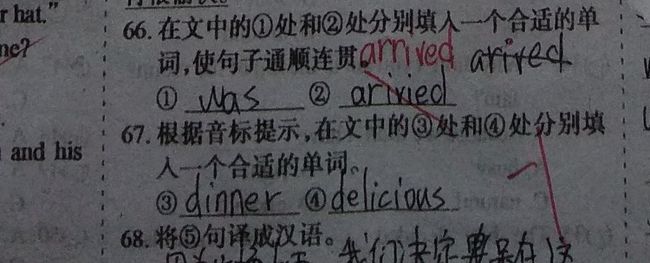 r hat."
66. 在文中的①处和②处分别填入一个合适的单
ne?
词,使句子通顺连贯。 arrived arived
① was ② arixied
67. 根据音标提示,在文中的③处和④处分别填
and his
入一个合适的单词。
③ dinner ④ delicious
68. 将⑤句译成汉语。 我们决定要呆在这